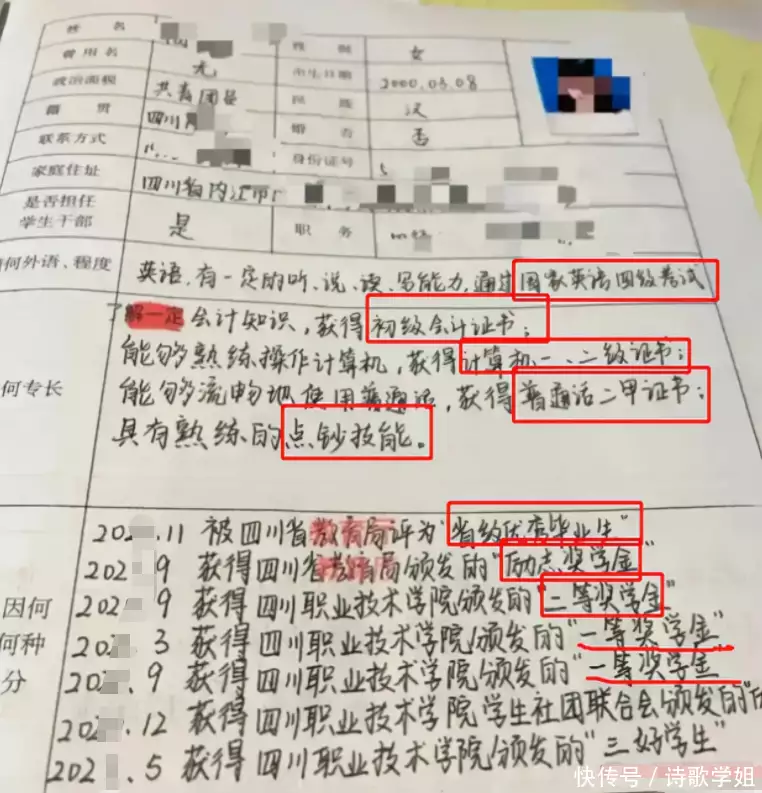 姓 名
性 别 女
曾用名 无
出生日期 2000.03.08
政治面貌 共青团员
民 族 汉
籍 贯 四川
婚 否 否
联系方式
身份证号
家庭住址 四川省内江市
是否担任
学生干部 是
职 务
何外语、程度 英语,有一定的听、说、读、写能力,通过国家英语四级考试
了解一定会计知识,获得初级会计证书;
能够熟练操作计算机,获得计算机一、二级证书;
何专长 能够流畅地使用普通话,获得普通话二甲证书;
具有熟练的点钞技能。
202 .11 被四川省教育局评为"省级优秀毕业生"
202 .9 获得四川省教育局颁发的"励志奖学金"
因何 202 .9 获得四川职业技术学院颁发的"二等奖学金"
何种 202 .3 获得四川职业技术学院颁发的"一等奖学金"
分 202 .9 获得四川职业技术学院颁发的"一等奖学金"
202 .12 获得四川职业技术学院学生社团联合会颁发的"
202 .5 获得四川职业技术学院颁发的"三好学生"
快传号/诗歌学姐